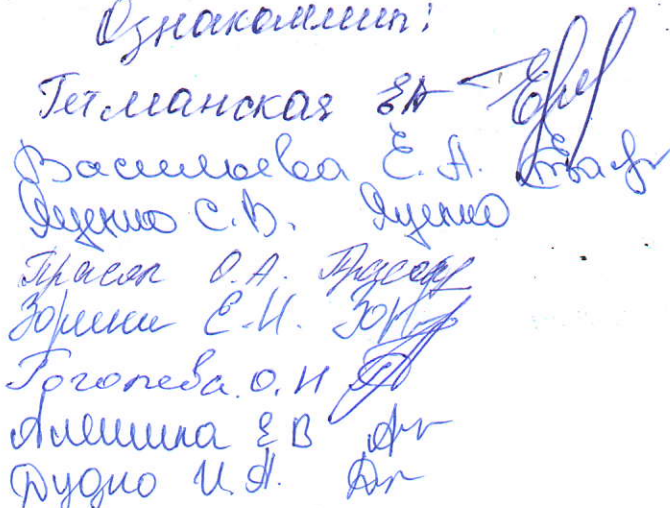 Ознакомлен:
Гетманская ЕА
Васильева Е. А.
Яценко С.В. Яценко
Прасол О.А.
Зорина Е.Н.
Гоголева О.Н
Алешина Е В
Дудко И.А.